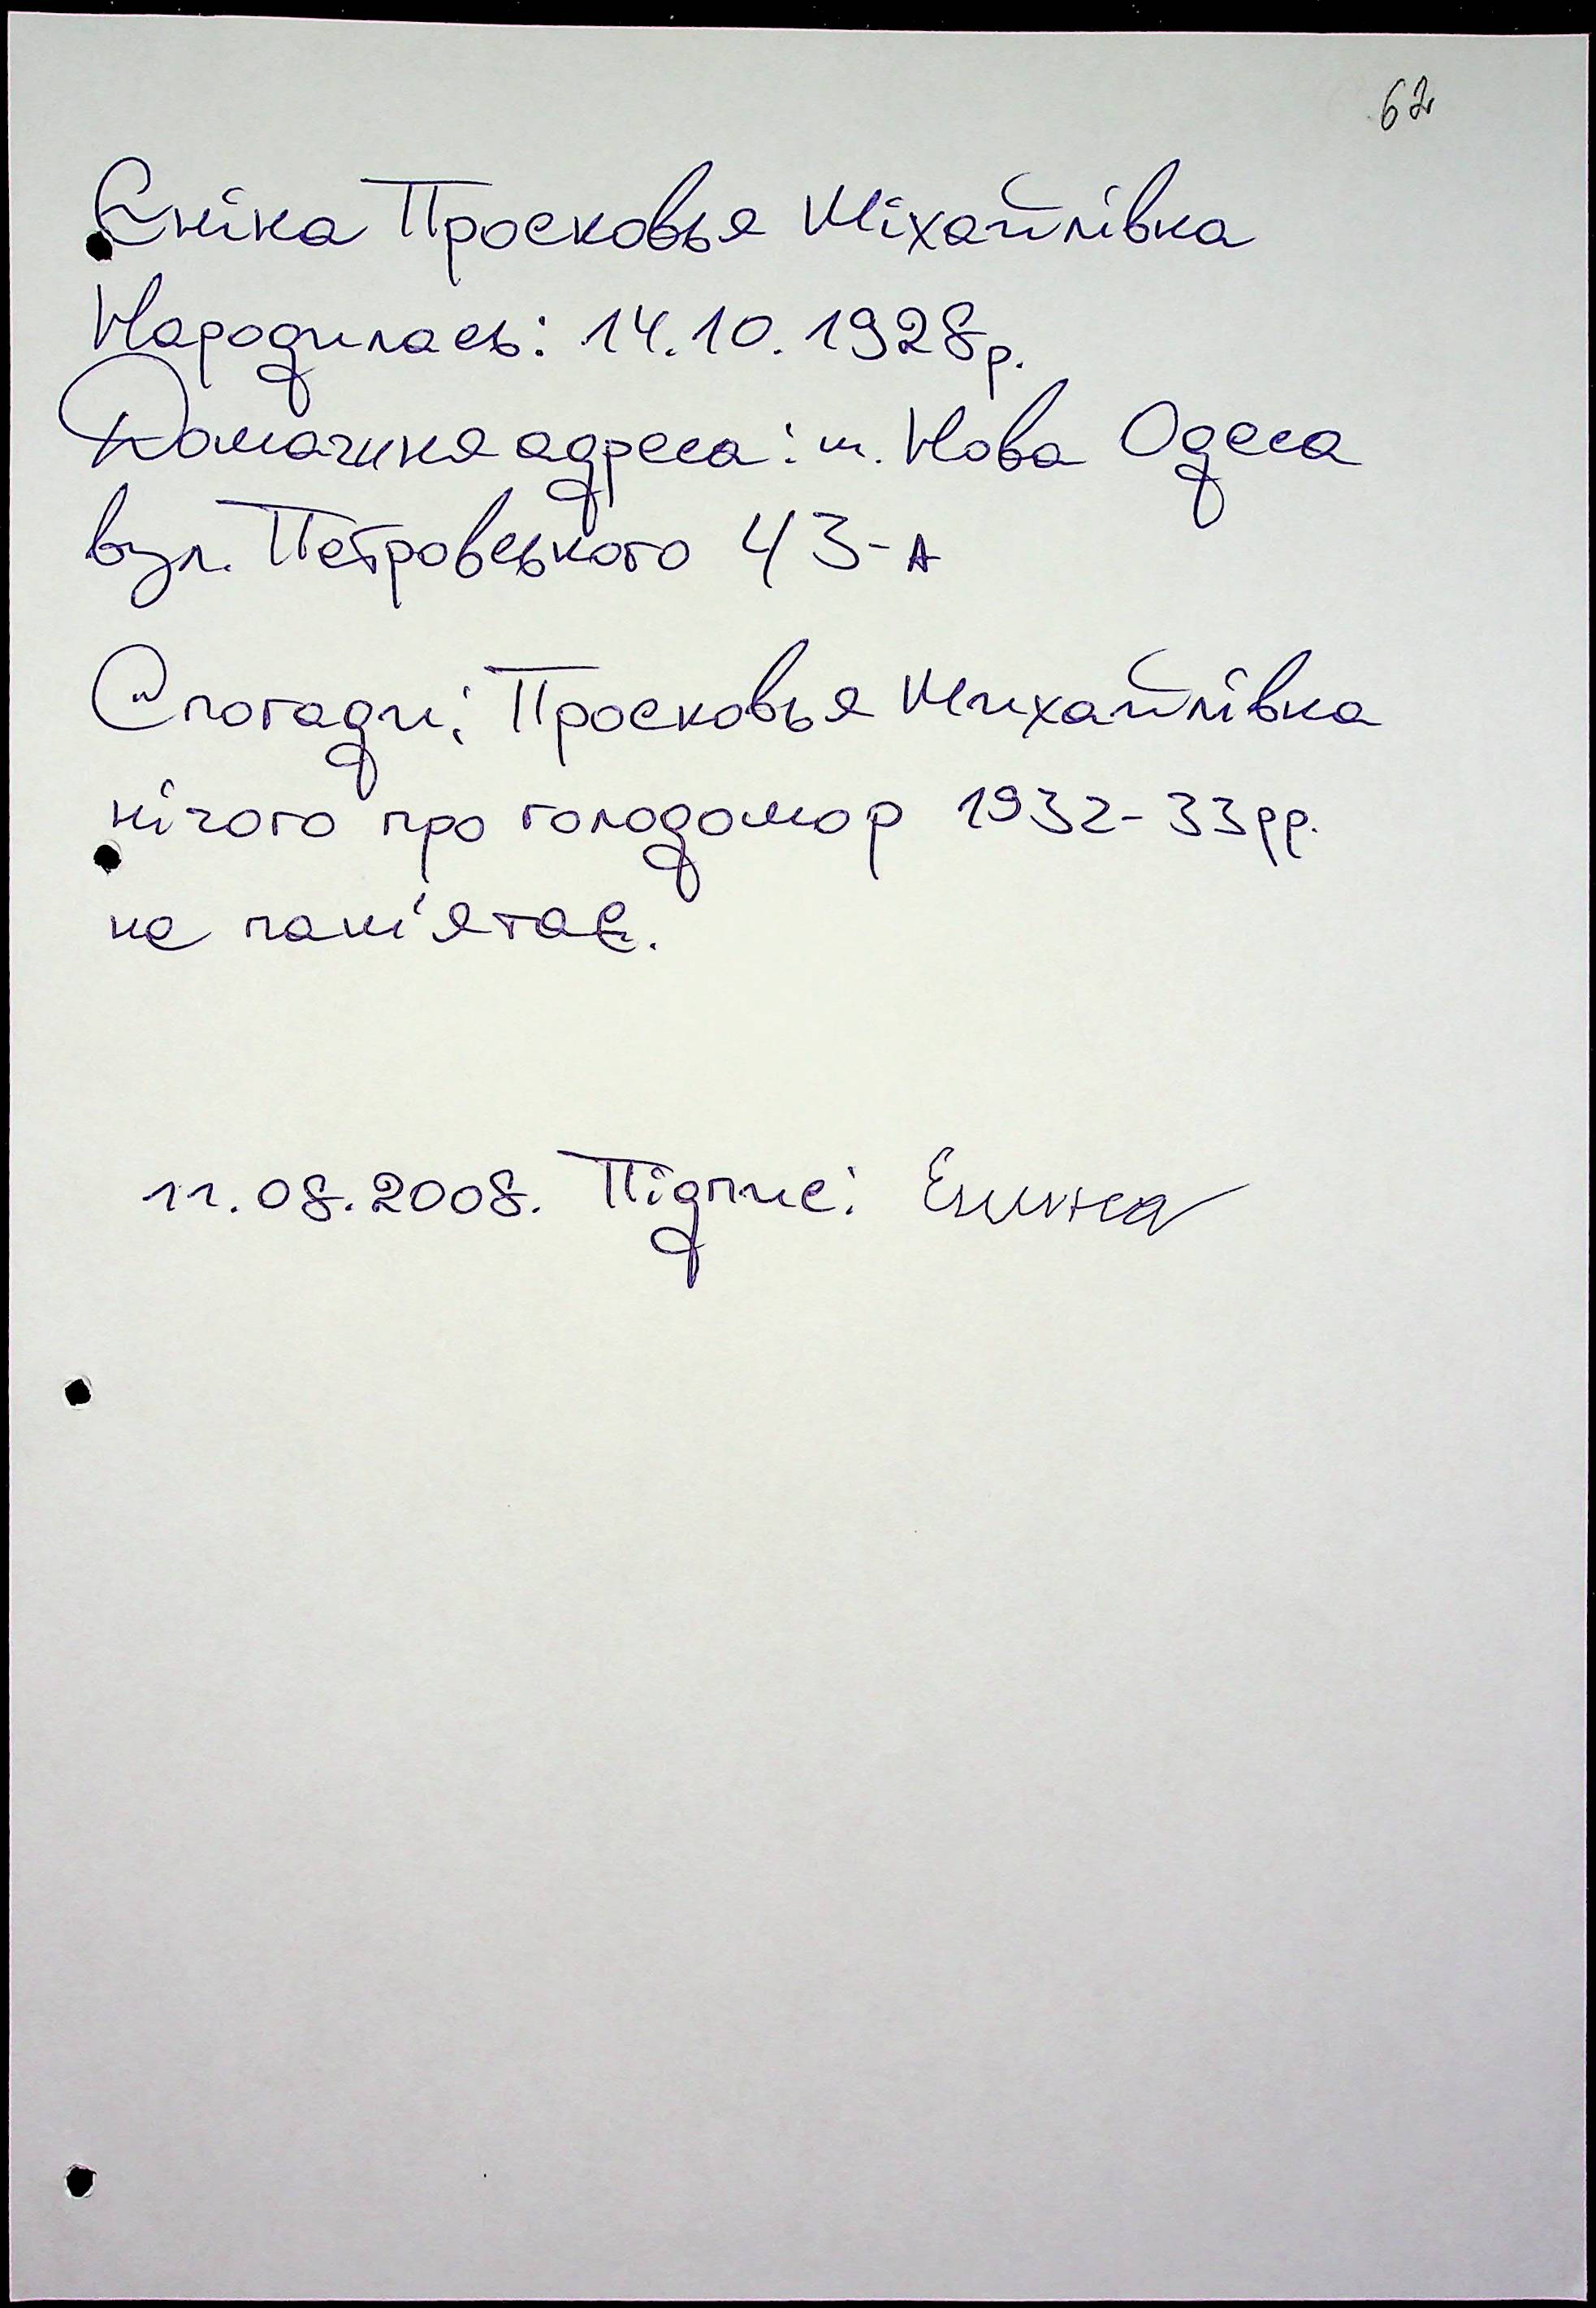 62
Єніна Просковья Міхайлівна
Народилась: 14.10.1928р.
Домашня адреса: м. Нова Одеса
вул. Петровського 43-А
Спогади: Просковья Михайлівна
нічого про голодомор 1932-33рр.
не пам'ятає.
11.08.2008. Підпис: Енина